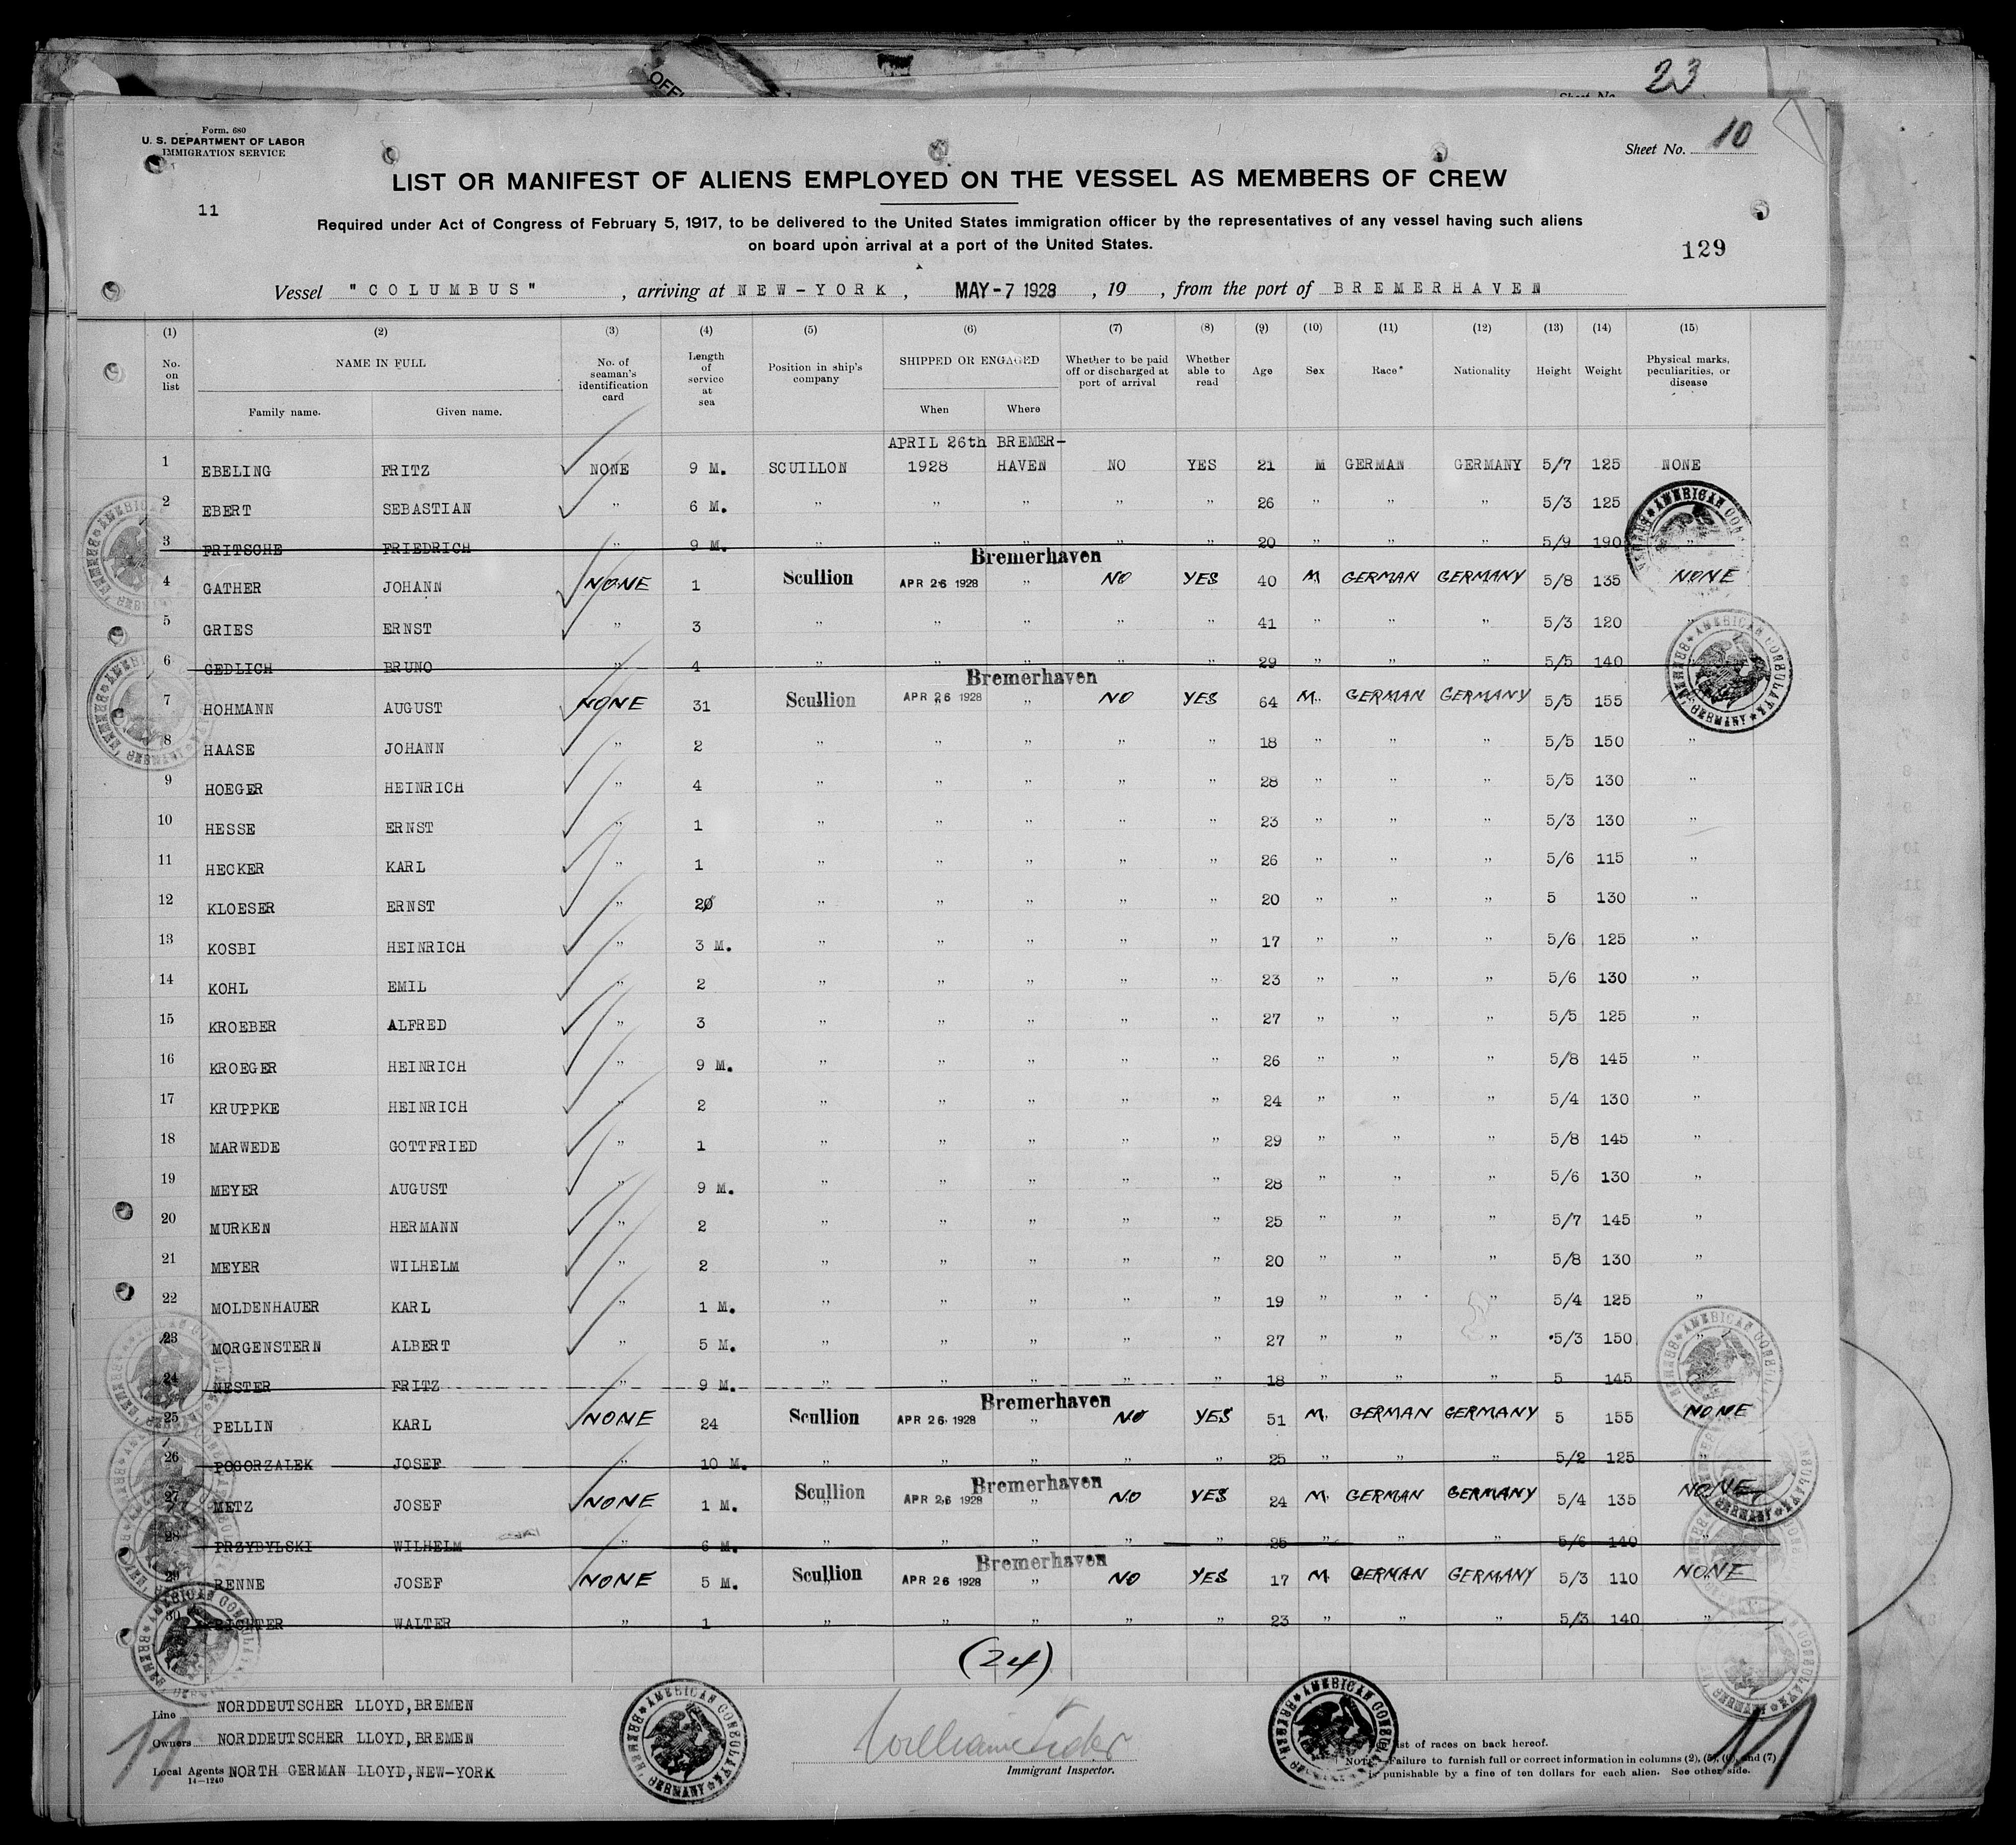 OFFI
23
Sheet No.
Form. 680
U. S. DEPARTMENT OF LABOR
IMMIGRATION SERVICE
Sheet No. 10
LIST OR MANIFEST OF ALIENS EMPLOYED ON THE VESSEL AS MEMBERS OF CREW
11
Required under Act of Congress of February 5, 1917, to be delivered to the United States immigration officer by the representatives of any vessel having such aliens
on board upon arrival at a port of the United States.
129
Vessel "COLUMBUS", arriving at NEW-YORK, MAY -7 1928, 19 , from the port of BREMERHAVEN
(1) (2) (3) (4) (5) (6) (7) (8) (9) (10) (11) (12) (13) (14) (15)
No. on list NAME IN FULL Family name. Given name. No. of seaman's identification card Length of service at sea Position in ship's company SHIPPED OR ENGAGED When Where Whether to be paid off or discharged at port of arrival Whether able to read Age Sex Race* Nationality Height Weight Physical marks, peculiarities, or disease
APRIL 26th BREMER-
1 EBELING FRITZ NONE 9 M. SCUILLON 1928 HAVEN NO YES 21 M GERMAN GERMANY 5/7 125 NONE
2 EBERT SEBASTIAN " 6 M. " " " " " 26 " " " 5/3 125
3 FRITSCHE FRIEDRICH " 9 M. " " " " " 20 " " " 5/9 190 "
Bremerhaven
4 GATHER JOHANN NONE 1 Scullion APR 26 1928 " NO YES 40 M GERMAN GERMANY 5/8 135 NONE
5 GRIES ERNST " 3 " " " " " 41 " " " 5/3 120 "
6 GEDLICH BRUNO " 4 " " " " " 29 " " " 5/5 140
Bremerhaven
7 HOHMANN AUGUST NONE 31 Scullion APR 26 1928 " NO YES 64 M. GERMAN GERMANY 5/5 155
8 HAASE JOHANN " 2 " " " " " 18 " " " 5/5 150 "
9 HOEGER HEINRICH " 4 " " " " " 28 " " " 5/5 130 "
10 HESSE ERNST " 1 " " " " " 23 " " " 5/3 130 "
11 HECKER KARL " 1 " " " " " 26 " " " 5/6 115 "
12 KLOESER ERNST " 20 " " " " " 20 " " " 5 130 "
13 KOSBI HEINRICH " 3 M. " " " " " 17 " " " 5/6 125 "
14 KOHL EMIL " 2 " " " " " 23 " " " 5/6 130 "
15 KROEBER ALFRED " 3 " " " " " 27 " " " 5/5 125 "
16 KROEGER HEINRICH " 9 M. " " " " " 26 " " " 5/8 145 "
17 KRUPPKE HEINRICH " 2 " " " " " 24 " " " 5/4 130 "
18 MARWEDE GOTTFRIED " 1 " " " " " 29 " " " 5/8 145 "
19 MEYER AUGUST " 9 M. " " " " " 28 " " " 5/6 130 "
20 MURKEN HERMANN " 2 " " " " " 25 " " " 5/7 145 "
21 MEYER WILHELM " 2 " " " " " 20 " " " 5/8 130 "
22 MOLDENHAUER KARL " 1 M. " " " " " 19 " " " 5/4 125 "
23 MORGENSTERN ALBERT " 5 M. " " " " " 27 " " " 5/3 150 "
24 NESTER FRITZ " 9 M. " " " " " 18 " " " 5 145
Bremerhaven
25 PELLIN KARL NONE 24 Scullion APR 26 1928 " NO YES 51 M. GERMAN GERMANY 5 155 NONE
26 POGORZALEK JOSEF " 10 M. " " " " " 25 " " " 5/2 125
Bremerhaven
27 METZ JOSEF NONE 1 M. Scullion APR 26 1928 " NO YES 24 M. GERMAN GERMANY 5/4 135 NONE
28 PRZYBYLSKI WILHELM " 6 M. " " " " " 25 " " " 5/6 140 "
Bremerhaven
29 RENNE JOSEF NONE 5 M. Scullion APR 26 1928 " NO YES 17 M GERMAN GERMANY 5/3 110 NONE
30 RICHTER WALTER " 1 " " " " " 23 " " " 5/3 140 "
(24)
Line NORDDEUTSCHER LLOYD, BREMEN
Owners NORDDEUTSCHER LLOYD, BREMEN
Local Agents NORTH GERMAN LLOYD, NEW-YORK
14-1240
AMERICAN CONSULATE BREMEN, GERMANY
Immigrant Inspector.
AMERICAN CONSULATE
list of races on back hereof.
NOTE Failure to furnish full or correct information in columns (2), (5), (6), and (7)
is punishable by a fine of ten dollars for each alien. See other side.